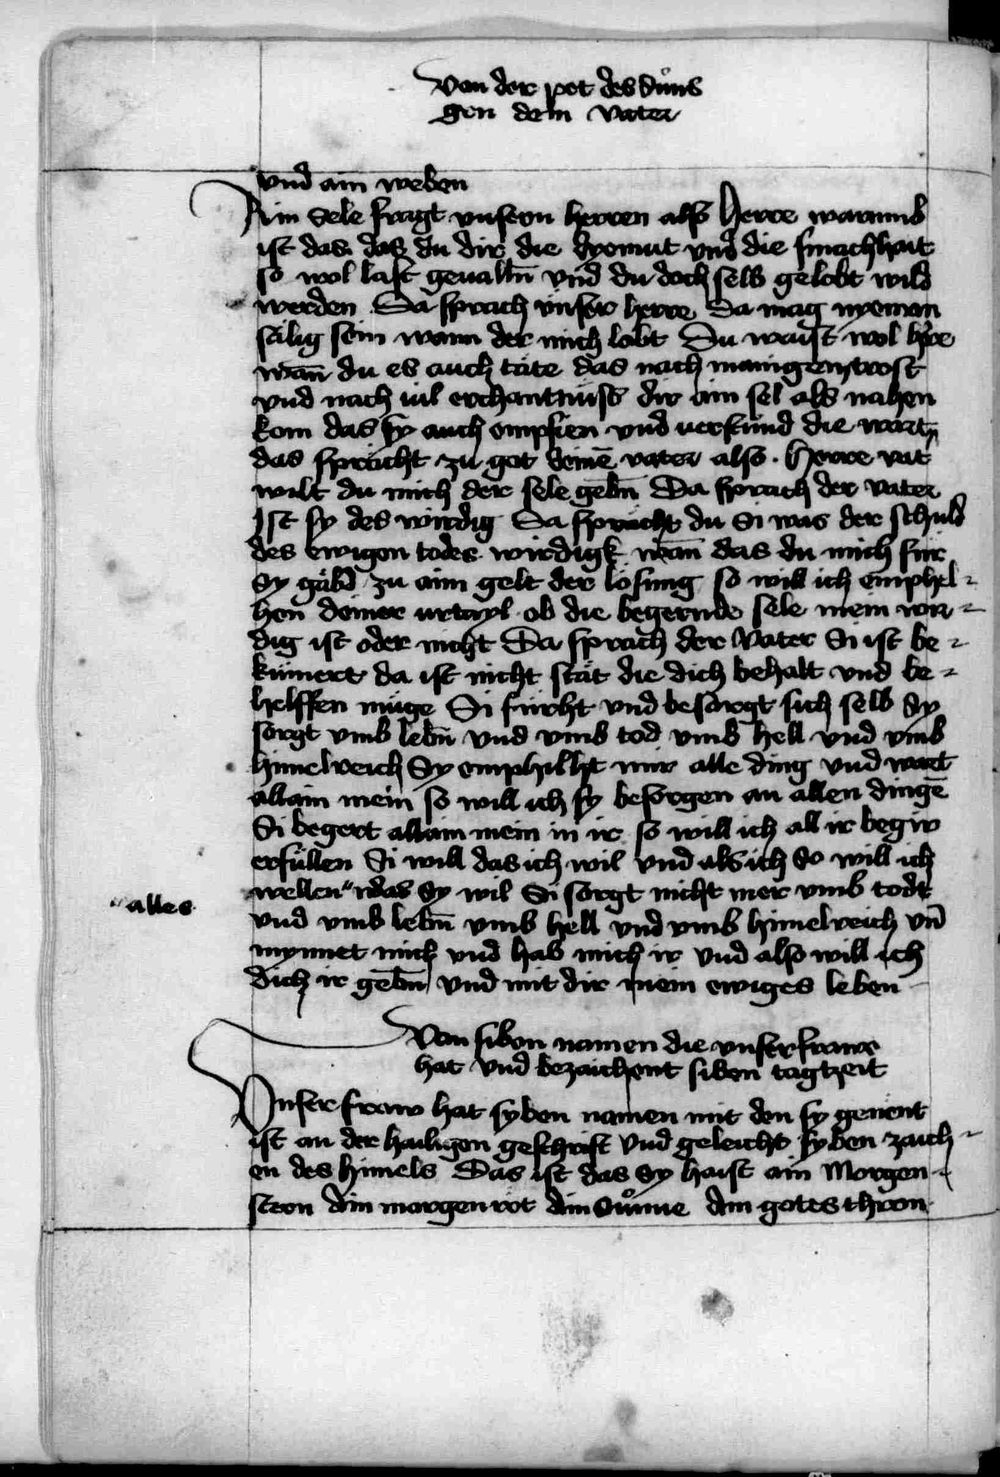 Von der pot des suͦns
gen dem vater
vnd ain weben
Ain sele fragt vnsern herren also Herre warumb
ist das das du dir die dyemut vnd die smachhait
so wol last geualln̄ vnd du doch selb gelobt wild
werden Da sprach vnser herre Da mag nyeman
sälig sein wann der mich lobt Du waist wol h're
wan̄ du es auch täte das nach manigem trost
vnd nach vil erchantnuss dir ain sel als nahen
kom das sy auch empfien vnd verkünd die wort
das spricht zu got deinē vater also · Herre vat'
wilt du mich der sele gebn̄ Da sprach der vater
Ist sy des wirdig Da spricht du Si was der schuld
des ewigen todes wirdigk wan̄ das du mich für
sy gäbd zu aim gelt der lösung so will ich emphel-
hen deiner urtayl ob die begernde sele mein wir-
dig ist oder nicht Da sprach der Vater Si ist be-
kümert da ist nicht stät die dich behalt vnd be-
helffen müge Si fürcht vnd besorgt sich selb Sy
sorgt vmb lebn̄ vnd vmb tod vmb hell vnd vmb
himelreich Sy emphilht mir alle ding vnd wart
allain mein so will ich sy besorgen an allen dingē
Si begert allain mein in ir so will ich all ir begir
erfüllen Si will das ich wil vnd als ich So will ich
wellen " das Sy wil Si sorgt nicht mer vmb tode
"alles
vnd vmb lebn̄ vmb hell vnd vmb himelreich vn̄
mynnet mich vnd hab mich ir vnd also will ich
dich ir gebn̄ vnd mit dir mein ewiges leben
Von siben namen die vnser frawe
hat vnd bezaichent siben tagtzeit
Vnser fraw hat syben namen mit den sy genent
ist an der hailigen geschrift vnd geleicht syben zaich-
en des himels Das ist das Sy haist ain Morgen-
stern Ain morgenrot Ain Suͦnne Ain gotes thron